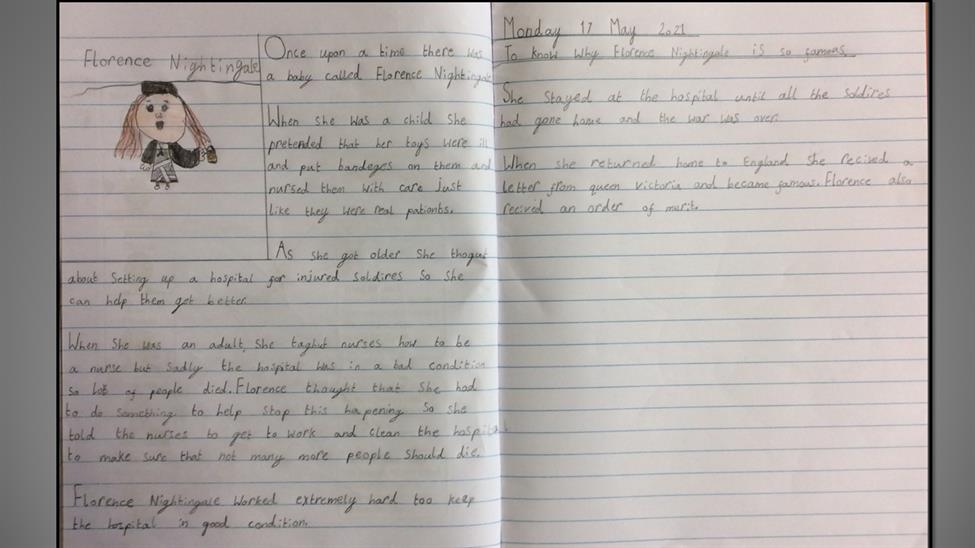 Florence Nightingale
Once upon a time there was
a baby called Florence Nightingale
When she was a child she
pretended that her toys were ill
and put bandeges on them and
nursed them with care just
like they were real patients.
As she got older she thogut
about setting up a hospital for injured soldires so she
can help them get better.
When she was an adult, she taghut nurses how to be
a nurse but sadly the hospital was in a bad condition
so lot of people died. Florence thought that she had
to do something to help stop this happening so she
told the nurses to get to work and clean the hospital
to make sure that not many more people should die.
Florence Nightingale worked extremely hard too keep
the hospital in good condition.
Monday 17 May 2021
To know why Florence Nightingale is so famous.
She stayed at the hospital until all the soldires
had gone home and the war was over.
When she returned home to England she recived a
letter from queen Victoria and became famous. Florence also
recived an order of merit.